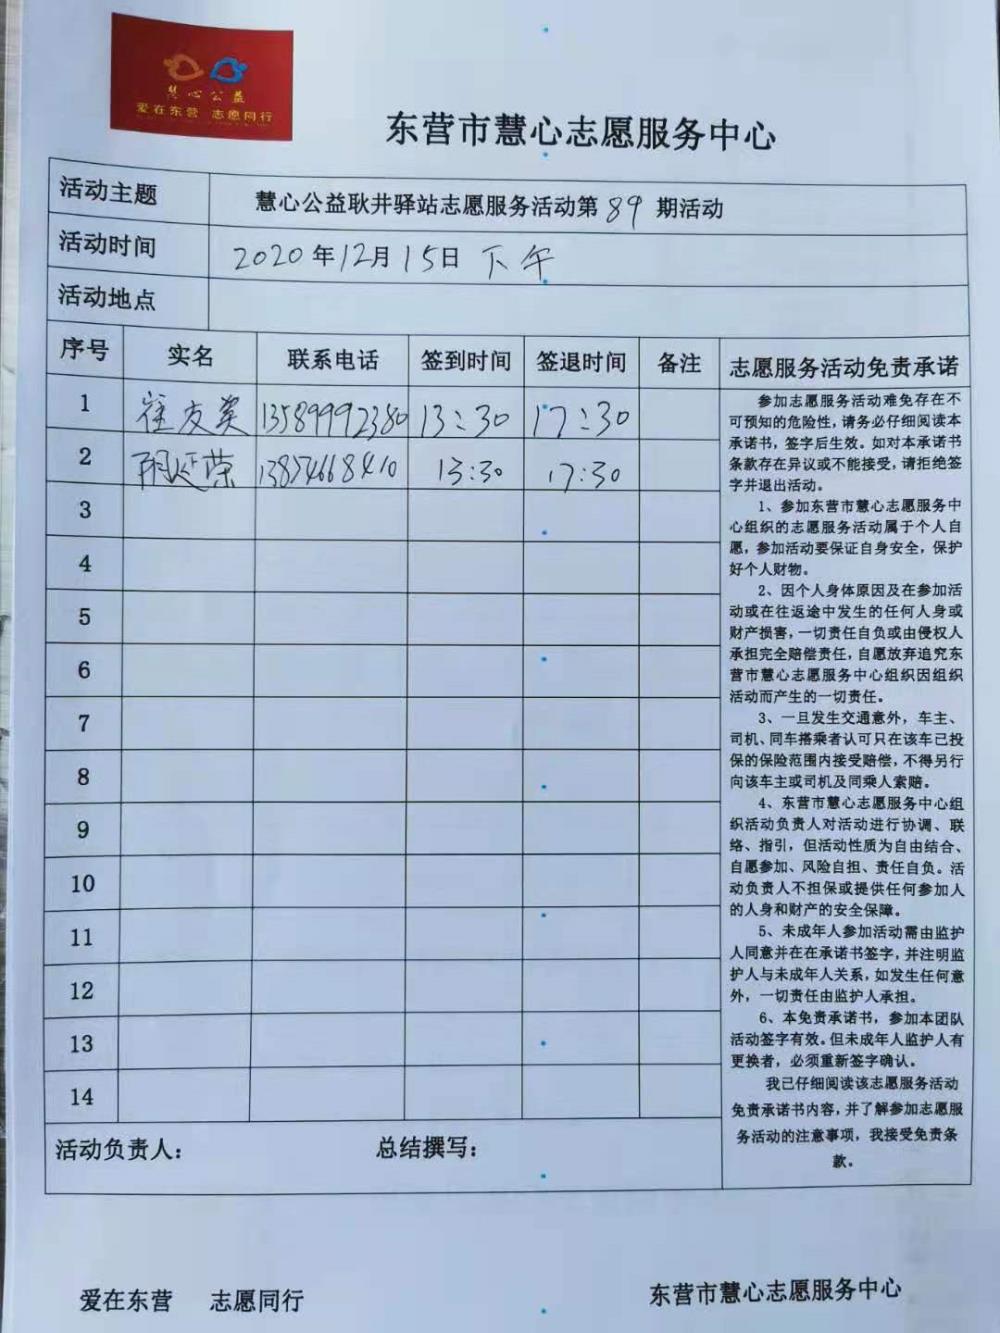 慧心公益
爱在东营 志愿同行
东营市慧心志愿服务中心
活动主题 慧心公益耿井驿站志愿服务活动第89期活动
活动时间 2020年12月15日 下午
活动地点
序号 实名 联系电话 签到时间 签退时间 备注 志愿服务活动免责承诺
1 崔友美 13589992380 13:30 17:30
2 延荣 13854668410 13:30 17:30
3
4
5
6
7
8
9
10
11
12
13
14
参加志愿服务活动难免存在不
可预知的危险性，请务必仔细阅读本
承诺书，签字后生效。如对本承诺书
条款存在异议或不能接受，请拒绝签
字并退出活动。
1、参加东营市慧心志愿服务中
心组织的志愿服务活动属于个人自
愿，参加活动要保证自身安全，保护
好个人财物。
2、因个人身体原因及在参加活
动或在往返途中发生的任何人身或
财产损害，一切责任自负或由侵权人
承担完全赔偿责任，自愿放弃追究东
营市慧心志愿服务中心组织因组织
活动而产生的一切责任。
3、一旦发生交通意外，车主、
司机、同车搭乘者认可只在该车已投
保的保险范围内接受赔偿，不得另行
向该车主或司机及同乘人索赔。
4、东营市慧心志愿服务中心组
织活动负责人对活动进行协调、联
络、指引，但活动性质为自由结合、
自愿参加、风险自担、责任自负。活
动负责人不担保或提供任何参加人
的人身和财产的安全保障。
5、未成年人参加活动需由监护
人同意并在在承诺书签字，并注明监
护人与未成年人关系，如发生任何意
外，一切责任由监护人承担。
6、本免责承诺书，参加本团队
活动签字有效。但未成年人监护人有
更换者，必须重新签字确认。
我已仔细阅读该志愿服务活动
免责承诺书内容，并了解参加志愿服
务活动的注意事项，我接受免责条
款。
活动负责人： 总结撰写：
爱在东营 志愿同行 东营市慧心志愿服务中心